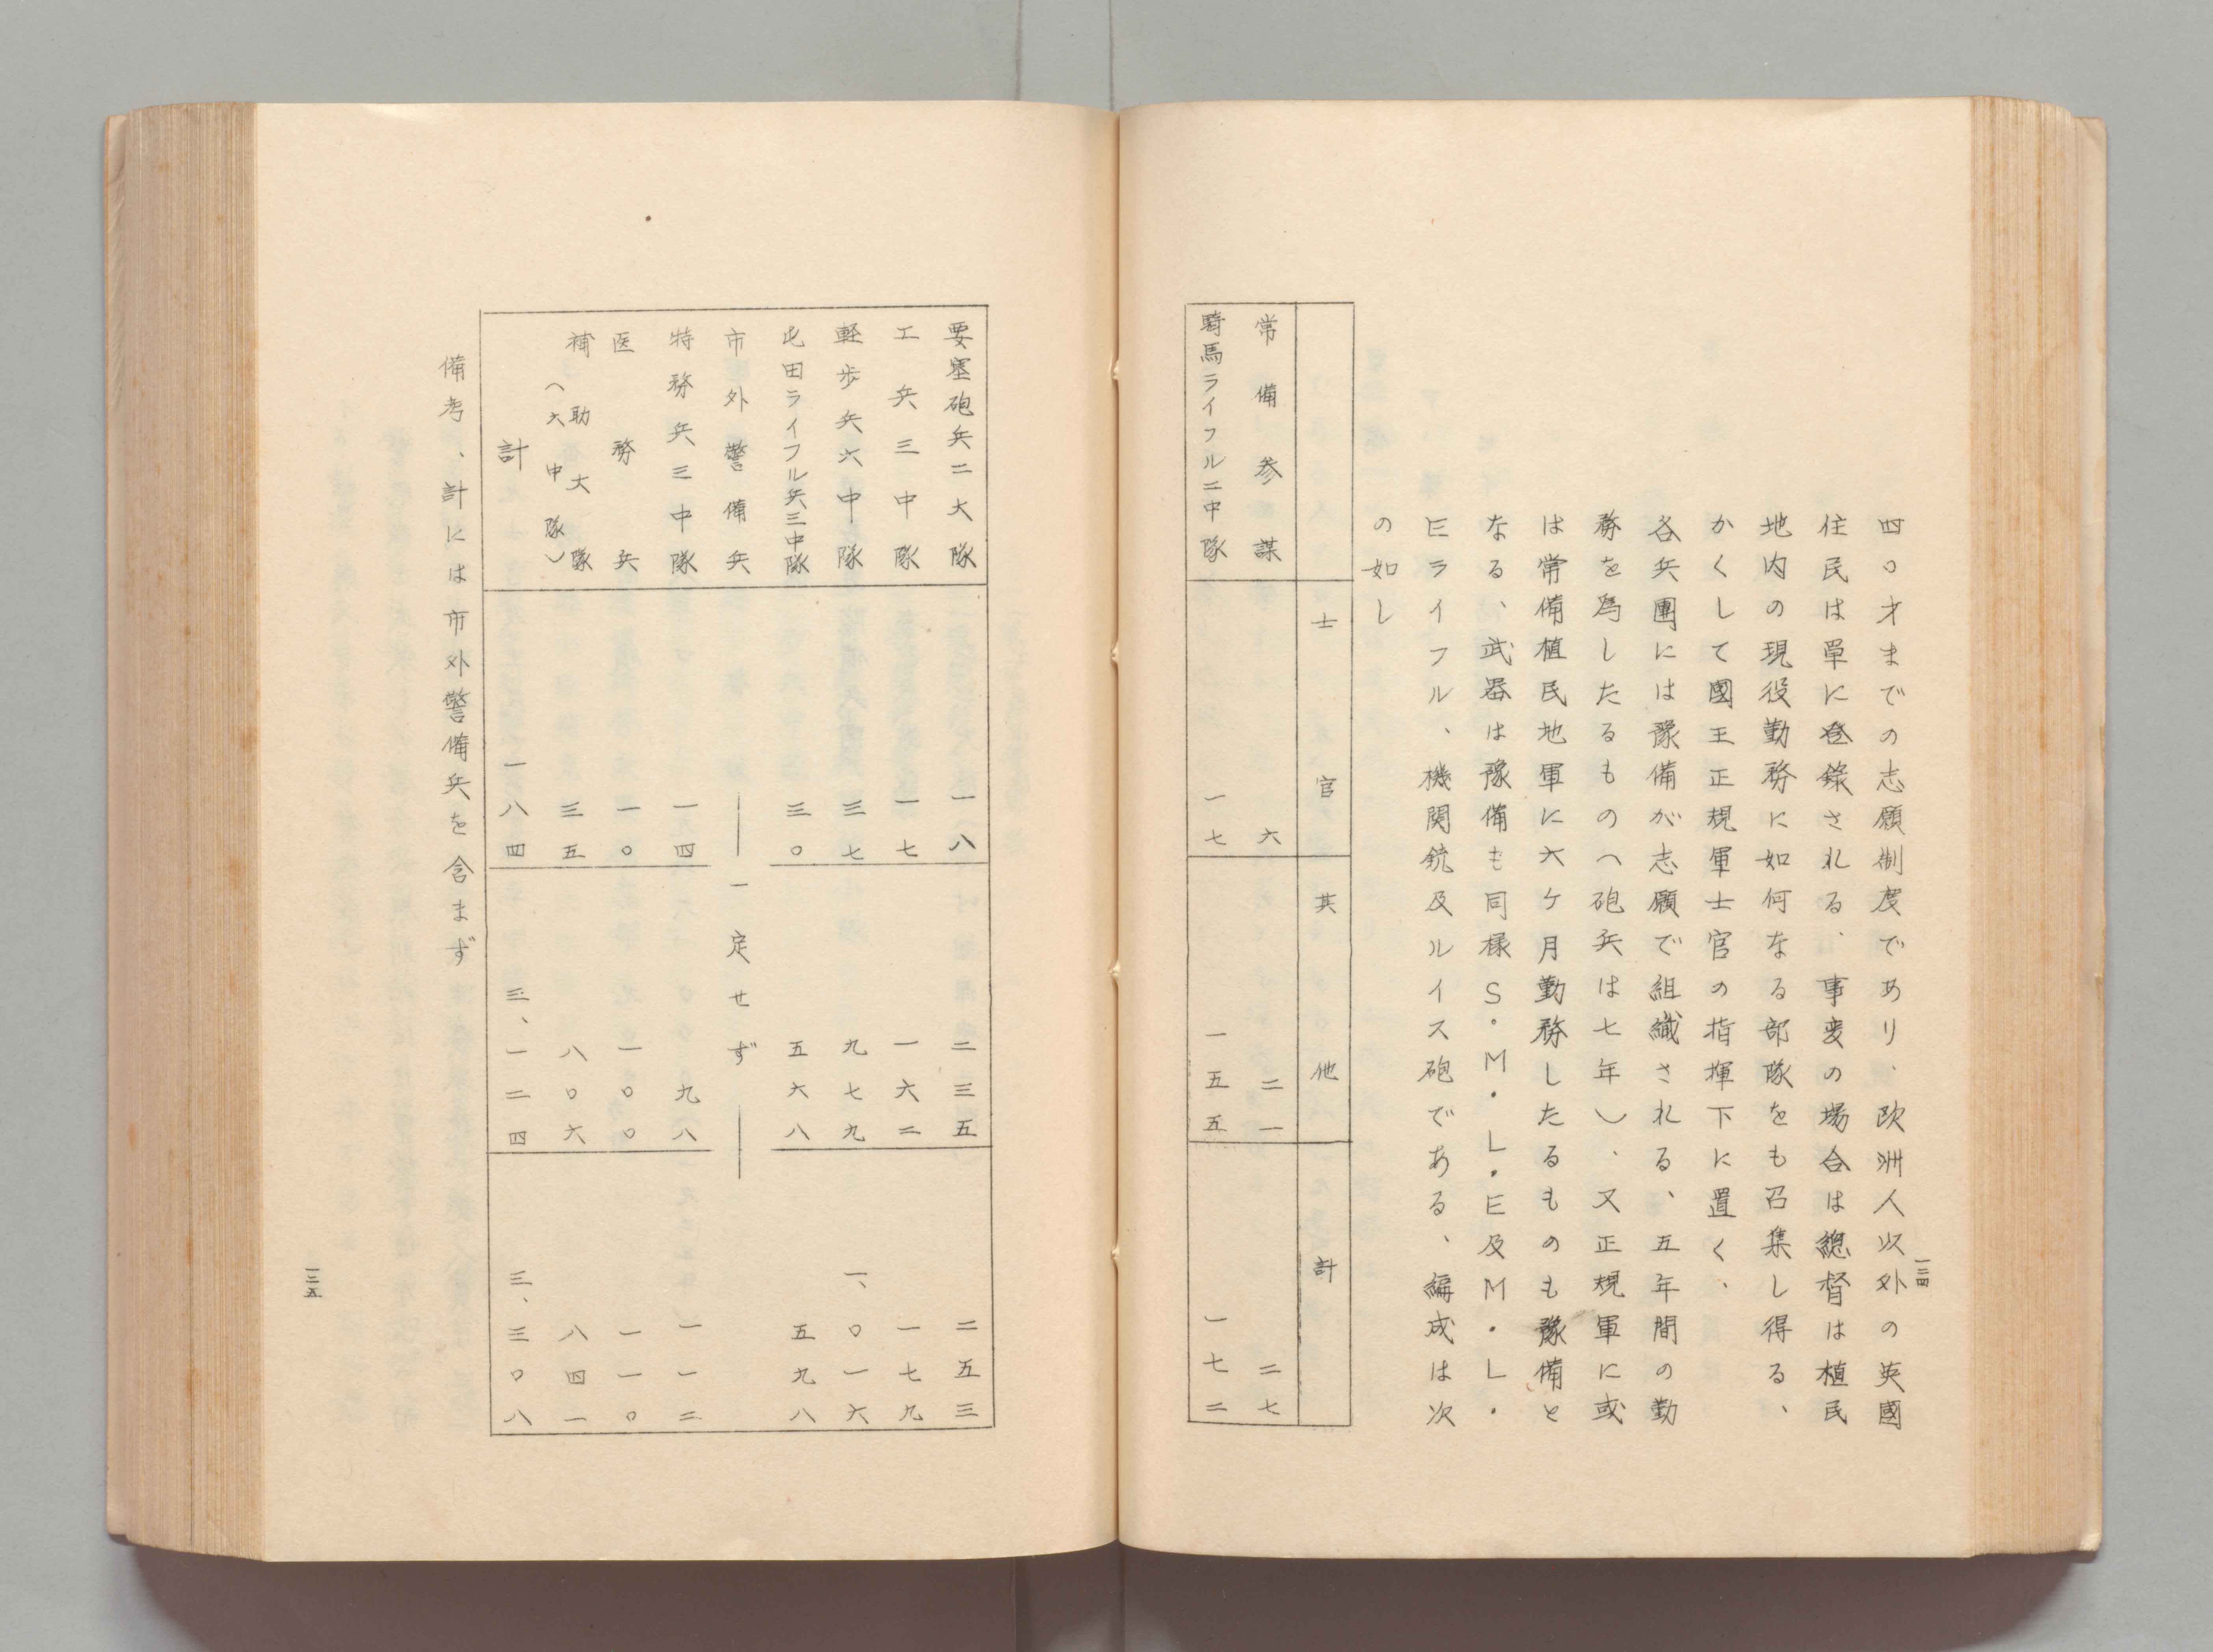 四〇才までの志願制度であり、欧洲人以外の英國
住民は單に登錄される、事変の場合は總督は植民
地内の現役勤務に如何なる部隊をも召集し得る、
かくして國王正規軍士官の指揮下に置く、
各兵團には豫備が志願で組織される、五年間の勤
務を爲したるもの(砲兵は七年)、又正規軍に或
は常備植民地軍に六ケ月勤務したるものも豫備と
なる、武器は豫備も同様S・M・L・E及M・L・
Eライフル、機関銃及ルイス砲である、編成は次
の如し
士官 其他 計
常備参謀 六 二一 二七
騎馬ライフル二中隊 一七 一五五 一七二
一二四
要塞砲兵二大隊 一八 二三五 二五三
工兵三中隊 一七 一六二 一七九
軽歩兵六中隊 三七 九七九 一、〇一六
屯田ライフル兵三中隊 三〇 五六八 五九八
市外警備兵 ——一定せず——
特務兵三中隊 一四 九八 一一二
医務兵 一〇 一〇〇 一一〇
補助大隊 三五 八〇六 八四一
(六中隊)
計 一八四 三、一二四 三、三〇八
備考、計には市外警備兵を含まず
一二五